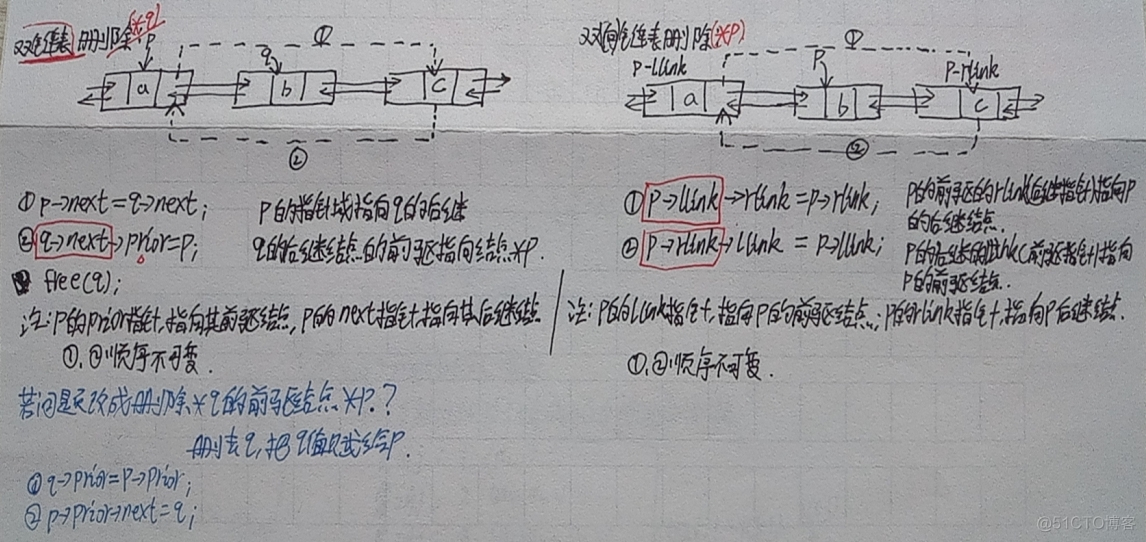 双链表删除(*q)
p
①
q
a
b
c
②
①p→next=q→next; p的指针域指向q的后继
②q→next→prior=p; q的后继结点的前驱指向结点*p.
free(q);
注:p的prior指针,指向其前驱结点,p的next指针,指向其后继结点
①,②顺序不可变
若问题改成删除*q的前驱结点*p.?
删去q,把q值赋给p.
①q→prior=p→prior;
②p→prior→next=q;
双向链表删除(*p)
①
p-llink
p
p-rlink
a
b
c
②
①p→llink→rlink=p→rlink; p的前驱的rlink(后继指针)指向p
的后继结点.
②p→rlink→llink=p→llink; p的后继的llink(前驱指针)指向
p的前驱结点.
注:p的llink指针,指向p的前驱结点;p的rlink指针,指向p后继结点.
①,②顺序不可变.
@51CTO博客